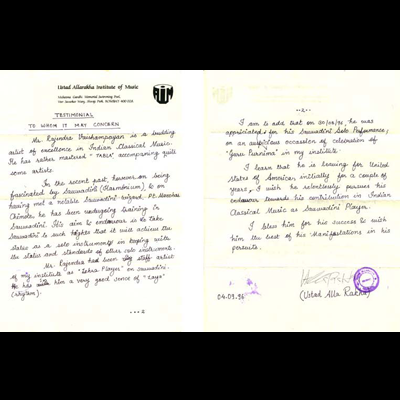 Ustad Allarakha Institute of Music
Mahatma Gandhi Memorial Swimming Pool,
Veer Savarkar Marg, Shivaji Park, BOMBAY 400 028.
AIM
TESTIMONIAL
TO WHOM IT MAY CONCERN
Mr. Rajendra Vaishampayan is a budding
artist of excellence in Indian Classical Music.
He has rather mastered "TABLA" accompanying quite
some artists.
In the recent past, however, on being
fascinated by Sauvadini (Harmonium), & on
having met a notable Sauvadini wizard, Pt. Manohar
Chimote, he has been undergoing training in
Sauvadini. His aim to endeavour is to take
Sauvadini to such heights that it will achieve the
status as a solo instrument in keeping with
the status and standards of other solo instruments.
Mr. Rajendra had been my staff artist
of my institute as "Lehra Player" on Sauvadini.
He has with him a very good sense of "Laya"
(rhythm).
...2
--2--
I am to add that on 30/07/96, he was
appreciated for his Sauvadini Solo Performance,
on an auspicious occasion of celebration of
"Guru Purnima" in my institute.
I learn that he is leaving for United
States of American initially for a couple of
years, I wish he relentlessly pursues his
endeavour towards his contribution in Indian
Classical Music as Sauvadini Player.
I bless him for his success & wish
him the best of his Manifestations in his
pursuits.
04.09.96
(Ustad Alla Rakha)